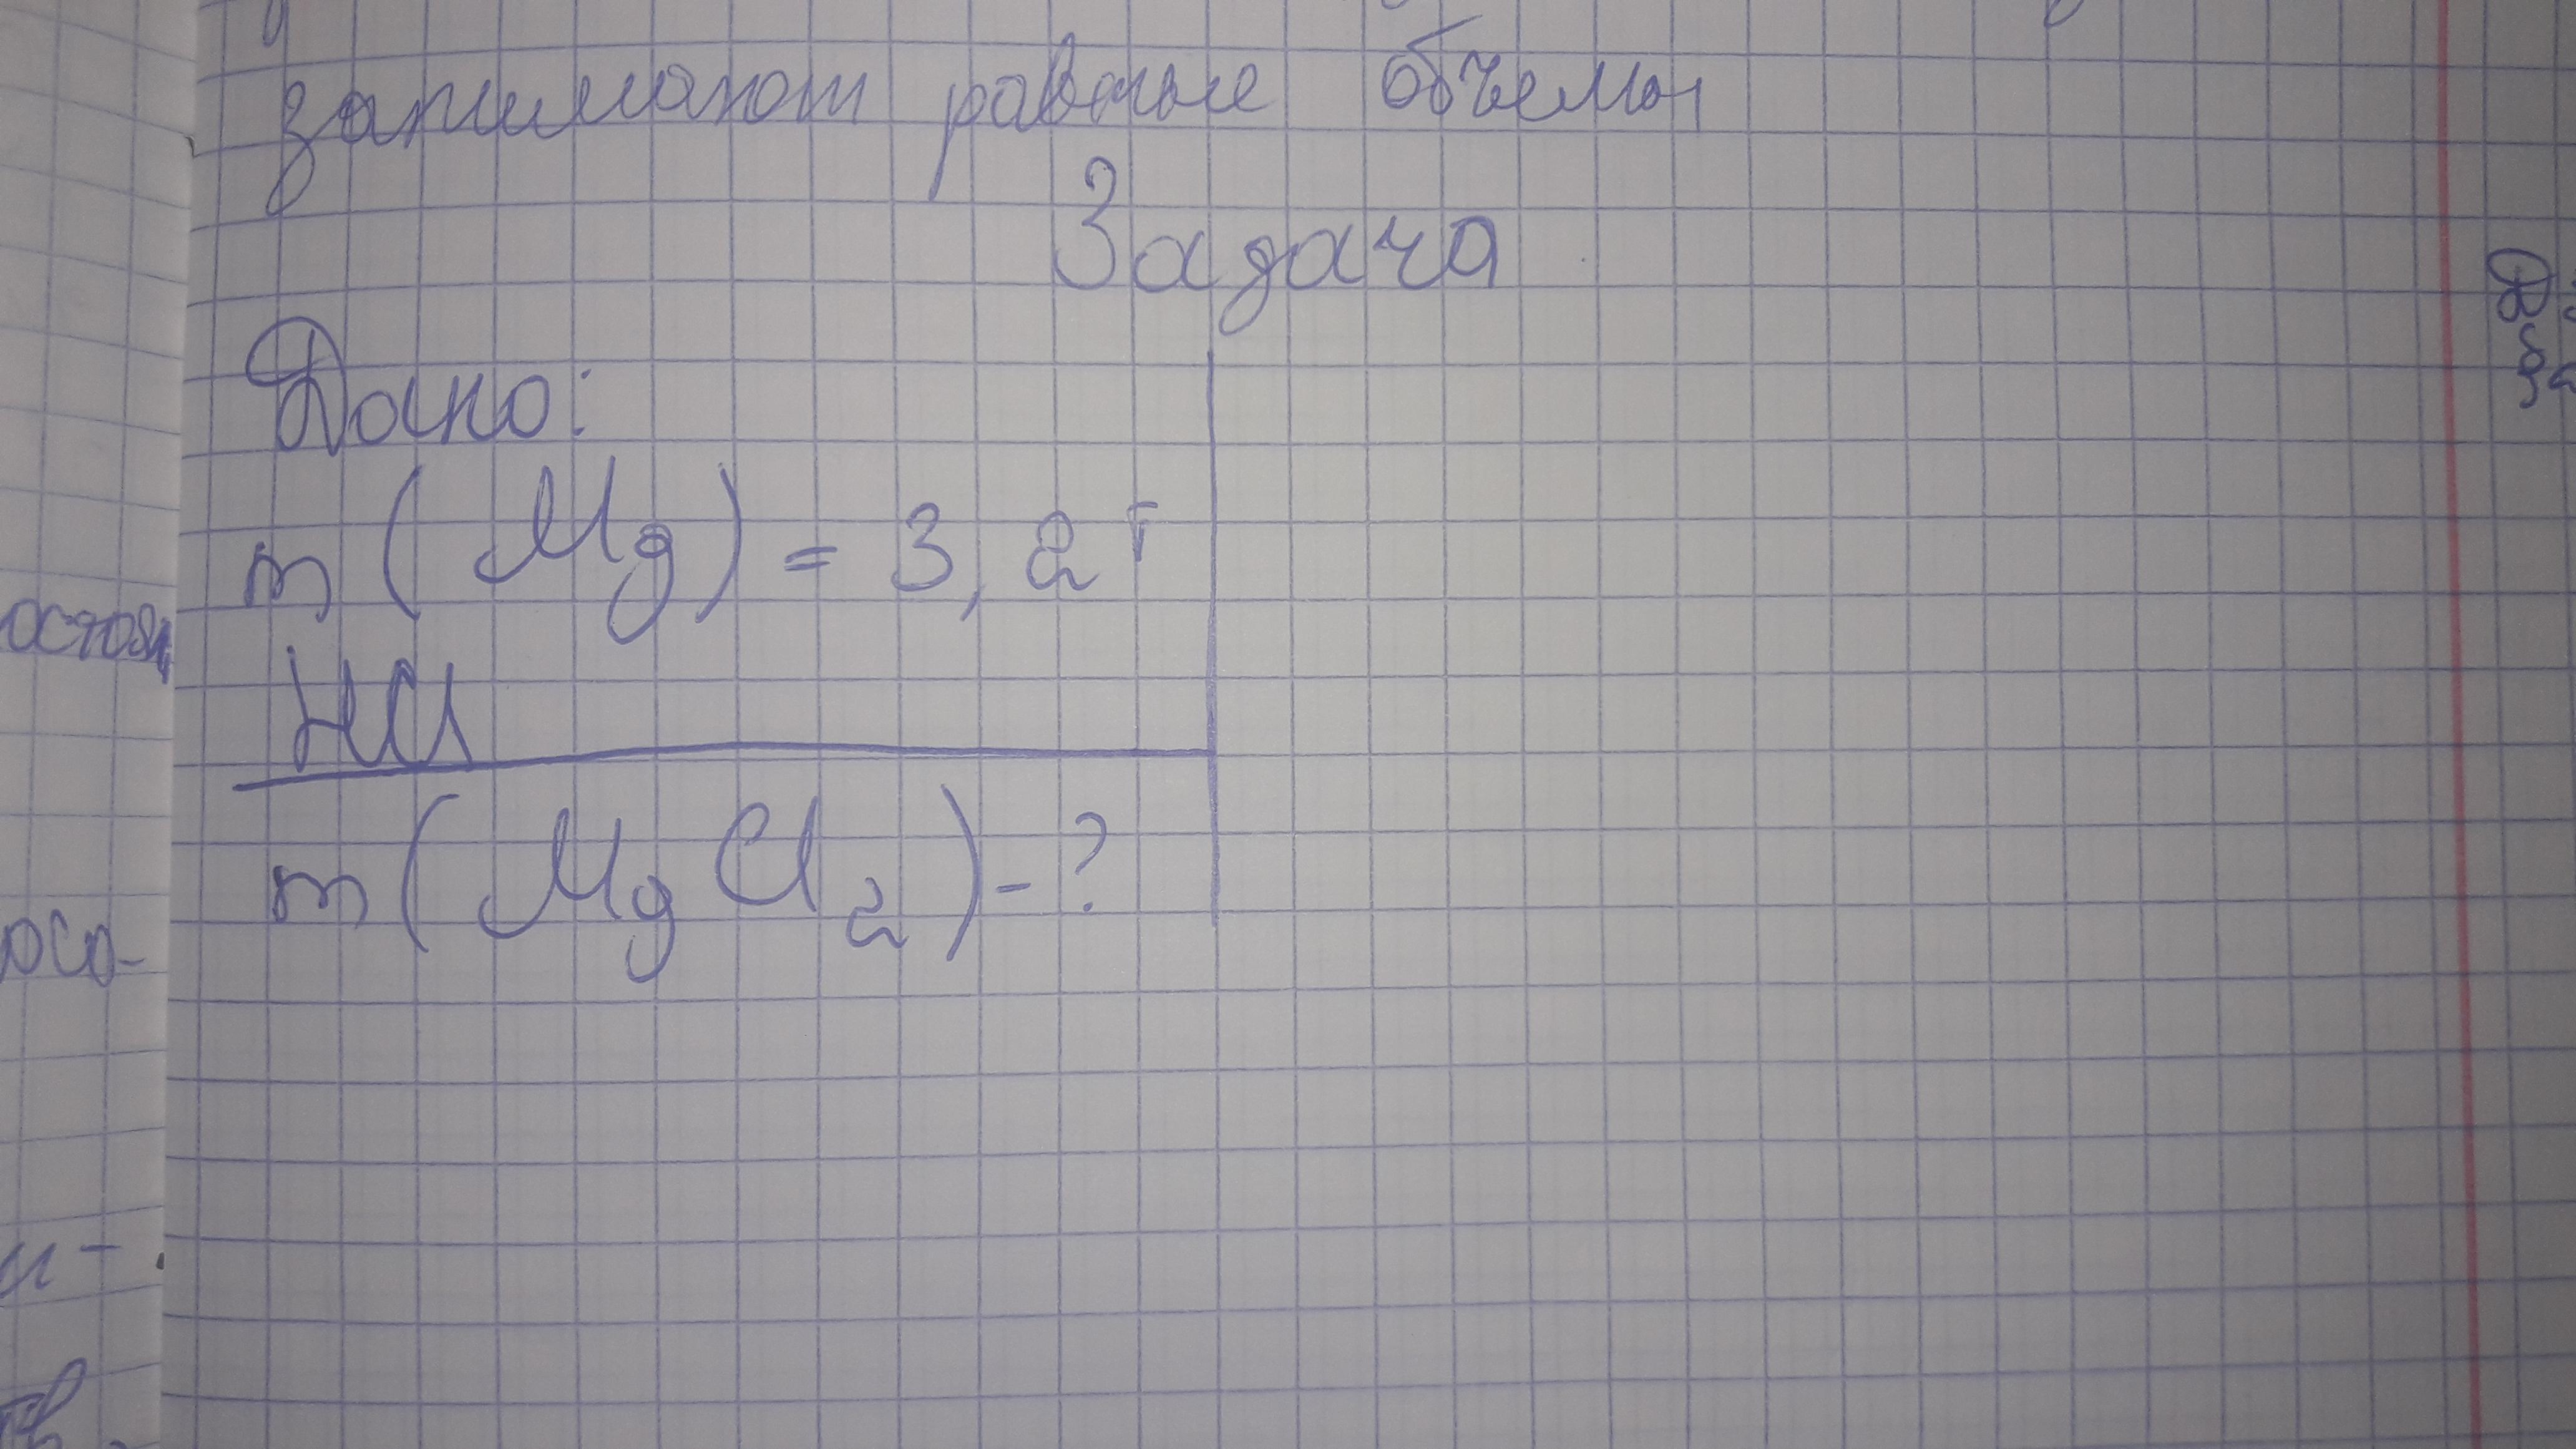 занимают равные объемы
Задача
Дано:
m (Mg) = 3,2 г
HCl
m (MgCl2) - ?